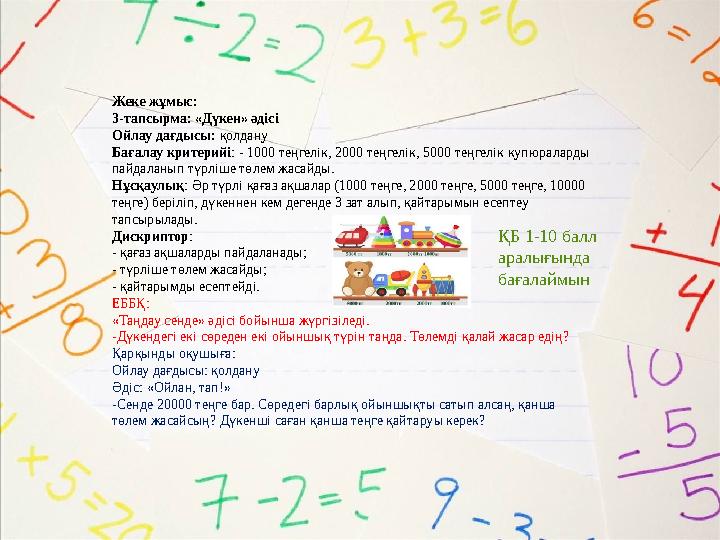 7÷2=2
3+3=6
6=1
Жеке жұмыс:
3-тапсырма: «Дүкен» әдісі
Ойлау дағдысы: қолдану
Бағалау критерийі: - 1000 теңгелік, 2000 теңгелік, 5000 теңгелік купюраларды
пайдаланып түрліше төлем жасайды.
Нұсқаулық: Әр түрлі қағаз ақшалар (1000 теңге, 2000 теңге, 5000 теңге, 10000
теңге) беріліп, дүкеннен кем дегенде 3 зат алып, қайтарымын есептеу
тапсырылады.
Дискриптор:
- қағаз ақшаларды пайдаланады;
- түрліше төлем жасайды;
- қайтарымды есептейді.
ҚБ 1-10 балл
аралығында
бағалаймын
ЕББҚ:
«Таңдау сенде» әдісі бойынша жүргізіледі.
-Дүкендегі екі сөреден екі ойыншық түрін таңда. Төлемді қалай жасар едің?
Қарқынды оқушыға:
Ойлау дағдысы: қолдану
Әдіс: «Ойлан, тап!»
-Сенде 20000 теңге бар. Сөредегі барлық ойыншықты сатып алсаң, қанша
төлем жасайсың? Дүкенші саған қанша теңге қайтаруы керек?
+ 1
4
10
- 5
5
+5=20
7-2=5
9-3=